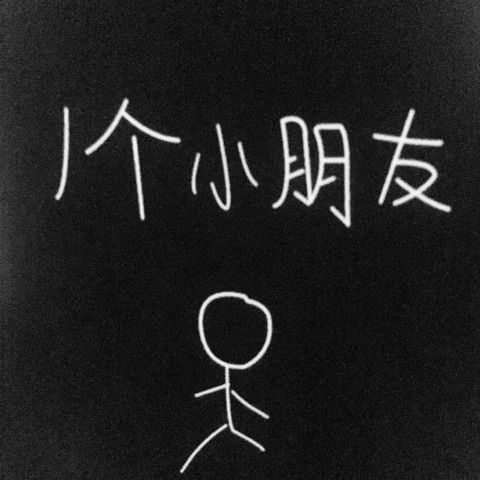 1个小朋友